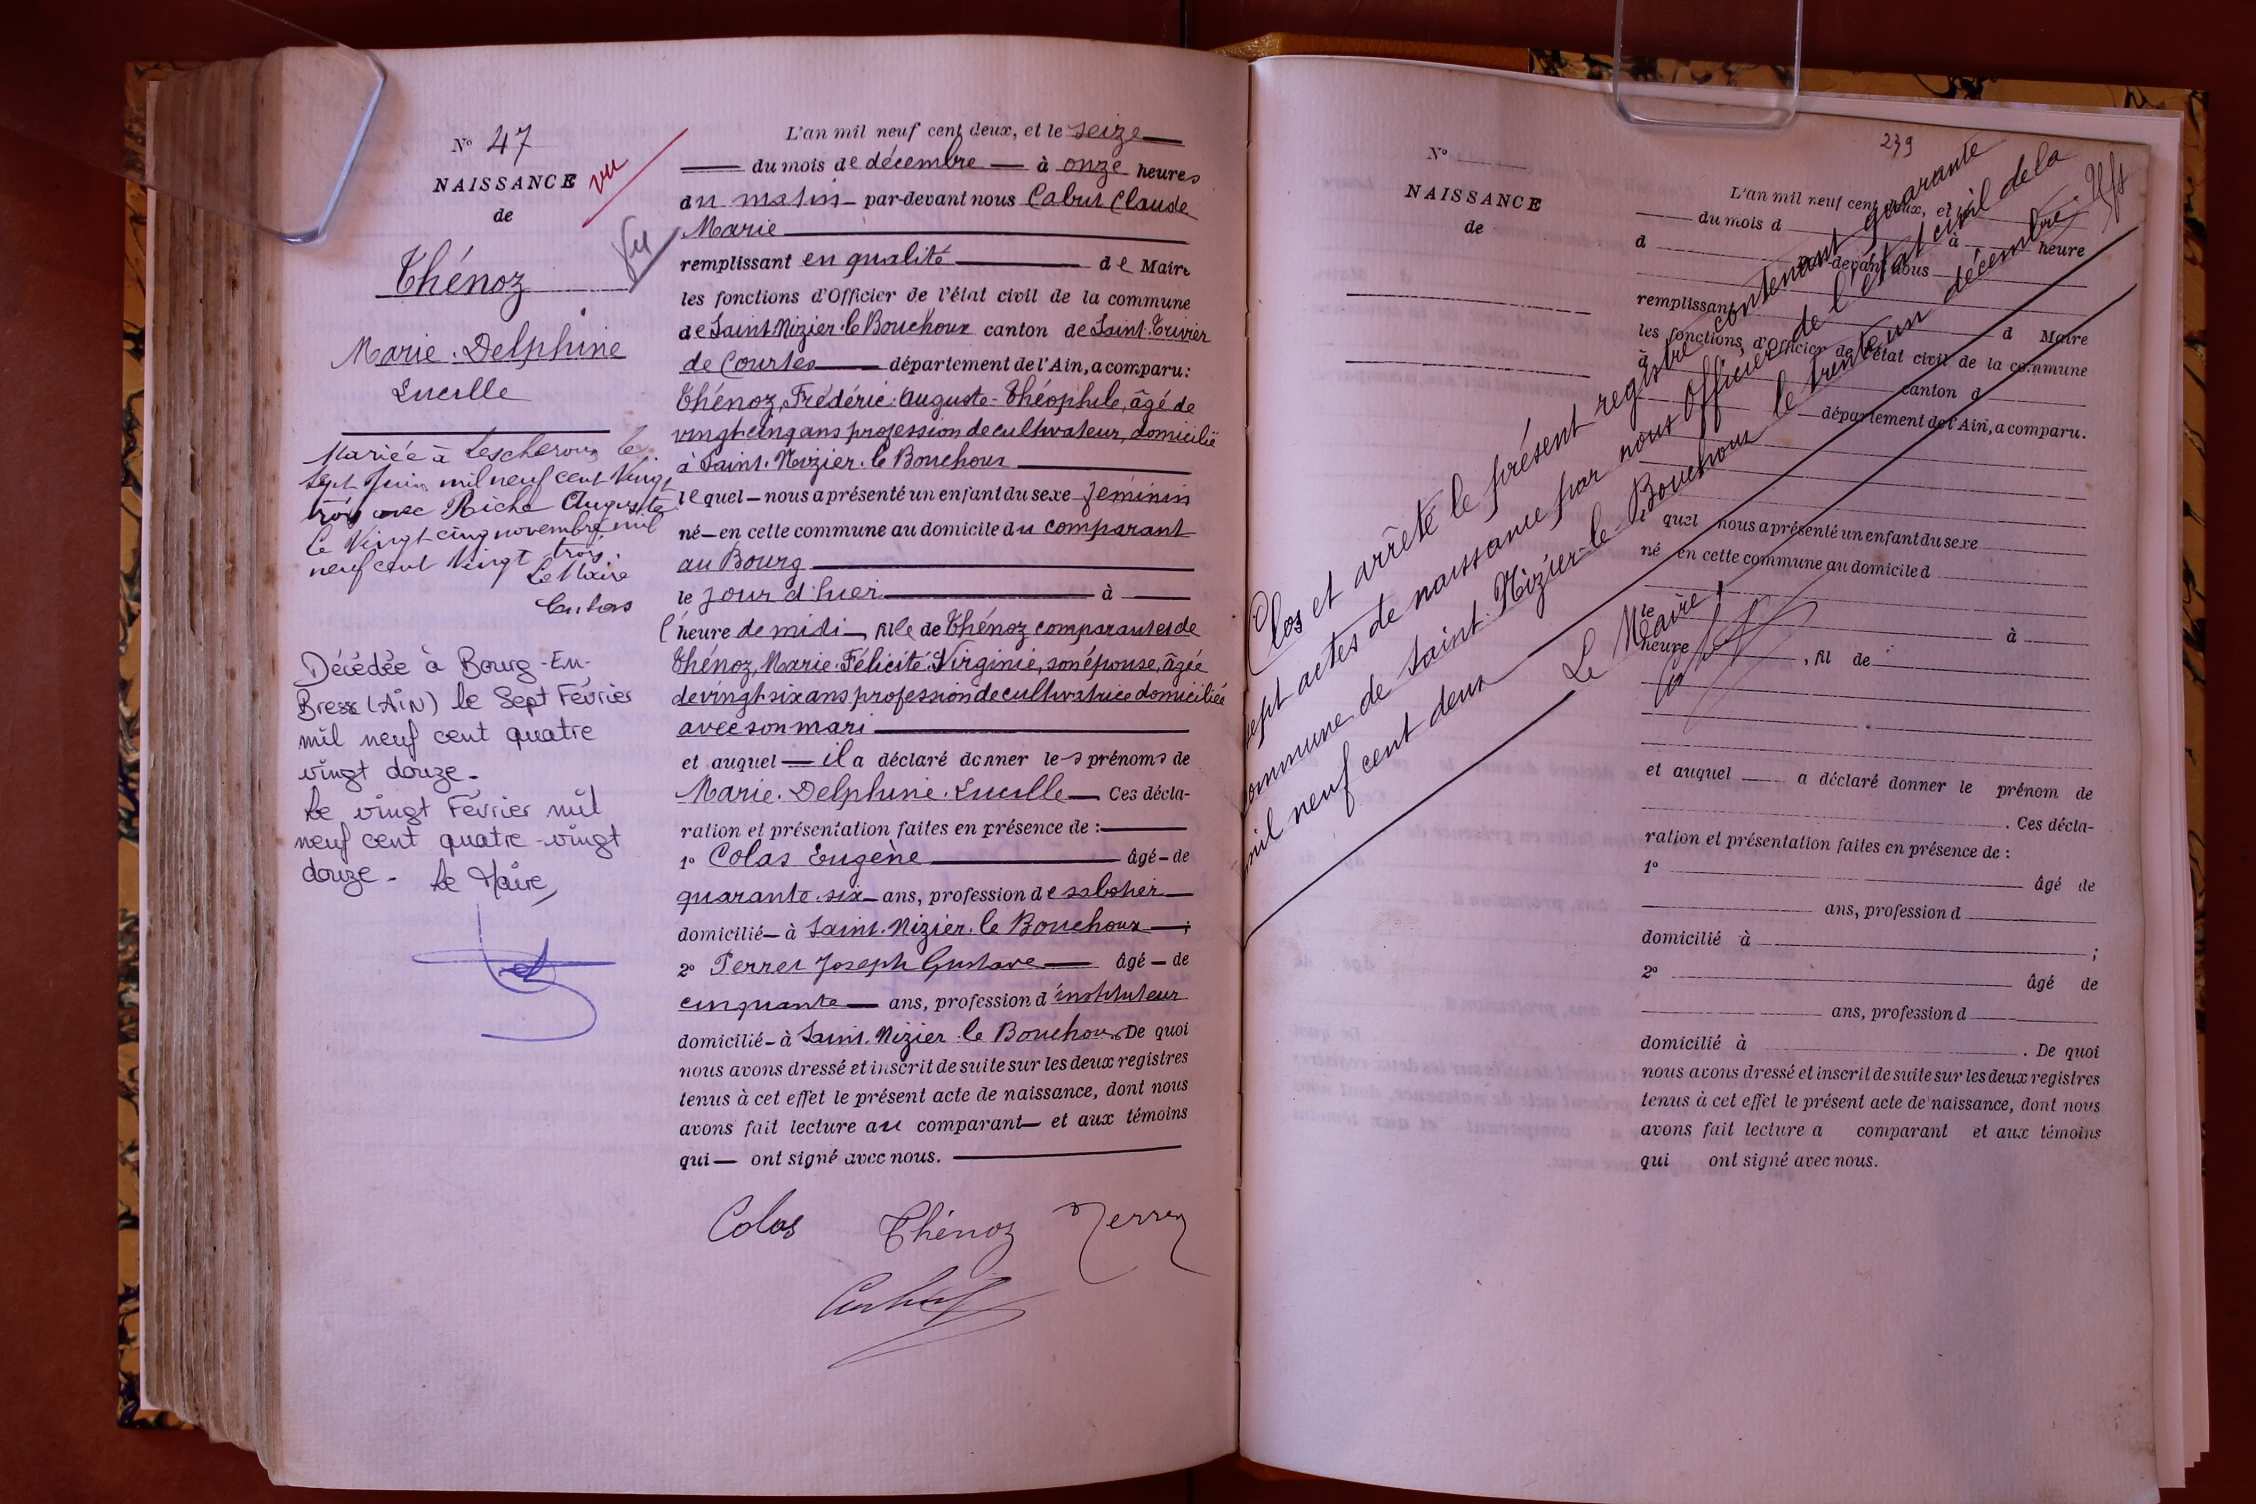 N° 47
NAISSANCE
de
Thénoz
Marie. Delphine
Lucille
vu
Vu
Mariée à Lescheroux le
sept Juin mil neuf cent vingt
trois avec Riche Auguste
le vingt cinq novembre mil
neuf cent vingt trois.
Le Maire
Décédée à Bourg-En-
Bresse (AiN) le Sept Février
mil neuf cent quatre
vingt douze.
Le vingt Février mil
neuf cent quatre-vingt
douze. Le Maire,
L'an mil neuf cent deux, et le seize
du mois de décembre à onze heures
du matin par-devant nous Cabut Claude
Marie
remplissant en qualité de Maire
les fonctions d'Officier de l'état civil de la commune
de Saint Nizier-le-Bouchoux canton de Saint-Trivier
de Courtes département de l'Ain, a comparu:
Thénoz, Frédéric-Auguste-Théophile, âgé de
vingt-cinq ans profession de cultivateur, domicilié
à Saint-Nizier-le Bouchoux
lequel nous a présenté un enfant du sexe féminin
né en cette commune au domicile du comparant
au Bourg
le jour d'hier à
l'heure de midi, fille de Thénoz comparant et de
Thénoz, Marie-Félicité-Virginie, son épouse, âgée
de vingt-six ans profession de cultivatrice domiciliée
avec son mari
et auquel il a déclaré donner les prénoms de
Marie. Delphine. Lucille Ces décla-
ration et présentation faites en présence de :
1° Colas Eugène âgé de
quarante-six ans, profession de sabotier
domicilié à Saint-Nizier-le Bouchoux ;
2° Perret Joseph Gustave âgé de
cinquante ans, profession d'instituteur
domicilié à Saint-Nizier-le Bouchoux. De quoi
nous avons dressé et inscrit de suite sur les deux registres
tenus à cet effet le présent acte de naissance, dont nous
avons fait lecture au comparant et aux témoins
qui ont signé avec nous.
Colas Thénoz Perret
239
N°
NAISSANCE
de
L'an mil neuf cent deux, et le
du mois d à heure
d par-devant nous
remplissant d Maire
les fonctions d'Officier de l'état civil de la commune
d canton d
département de l'Ain, a comparu.
l quel nous a présenté un enfant du sexe
né en cette commune au domicile d
le à
heure , fil de
et auquel a déclaré donner le prénom de
. Ces décla-
ration et présentation faites en présence de :
1° âgé de
ans, profession d
domicilié à ;
2° âgé de
ans, profession d
domicilié à . De quoi
nous avons dressé et inscrit de suite sur les deux registres
tenus à cet effet le présent acte de naissance, dont nous
avons fait lecture a comparant et aux témoins
qui ont signé avec nous.
Clos et arrêté le présent registre contenant quarante
sept actes de naissance par nous Officier de l'état civil de la
commune de Saint-Nizier-le Bouchoux le trente un décembre
mil neuf cent deux
Le Maire,